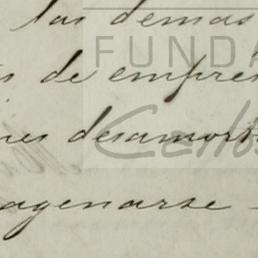 las demas
s de empre
nes desamort
agenarse -
FUNDA
Carlos